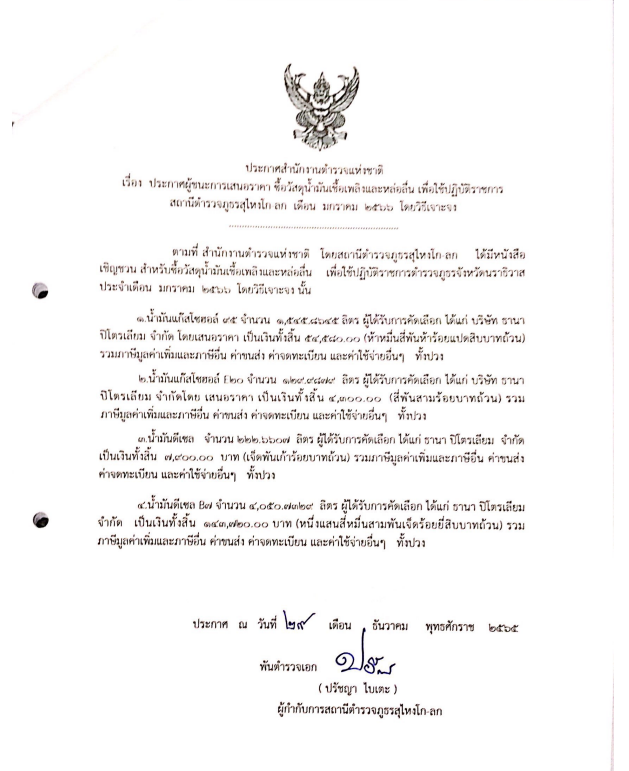 ประกาศสำนักงานตำรวจแห่งชาติ
เรื่อง ประกาศผู้ชนะการเสนอราคา ซื้อวัสดุน้ำมันเชื้อเพลิงและหล่อลื่น เพื่อใช้ปฏิบัติราชการ
สถานีตำรวจภูธรสุไหงโก-ลก เดือน มกราคม ๒๕๖๖ โดยวิธีเจาะจง
ตามที่ สำนักงานตำรวจแห่งชาติ โดยสถานีตำรวจภูธรสุไหงโก-ลก ได้มีหนังสือ
เชิญชวน สำหรับซื้อวัสดุน้ำมันเชื้อเพลิงและหล่อลื่น เพื่อใช้ปฏิบัติราชการตำรวจภูธรจังหวัดนราธิวาส
ประจำเดือน มกราคม ๒๕๖๖ โดยวิธีเจาะจง นั้น
๑.น้ำมันแก๊สโซฮอล์ ๙๕ จำนวน ๑,๕๔๕.๘๖๔๕ ลิตร ผู้ได้รับการคัดเลือก ได้แก่ บริษัท ธานา
ปิโตรเลียม จำกัด โดยเสนอราคา เป็นเงินทั้งสิ้น ๕๔,๕๘๐.๐๐ (ห้าหมื่นสี่พันห้าร้อยแปดสิบบาทถ้วน)
รวมภาษีมูลค่าเพิ่มและภาษีอื่น ค่าขนส่ง ค่าจดทะเบียน และค่าใช้จ่ายอื่นๆ ทั้งปวง
๒.น้ำมันแก๊สโซฮอล์ E๒๐ จำนวน ๑๒๙.๙๘๗๙ ลิตร ผู้ได้รับการคัดเลือก ได้แก่ บริษัท ธานา
ปิโตรเลียม จำกัดโดย เสนอราคา เป็นเงินทั้งสิ้น ๔,๓๐๐.๐๐ (สี่พันสามร้อยบาทถ้วน) รวม
ภาษีมูลค่าเพิ่มและภาษีอื่น ค่าขนส่ง ค่าจดทะเบียน และค่าใช้จ่ายอื่นๆ ทั้งปวง
๓.น้ำมันดีเซล จำนวน ๒๒๒.๖๖๐๗ ลิตร ผู้ได้รับการคัดเลือก ได้แก่ ธานา ปิโตรเลียม จำกัด
เป็นเงินทั้งสิ้น ๗,๙๐๐.๐๐ บาท (เจ็ดพันเก้าร้อยบาทถ้วน) รวมภาษีมูลค่าเพิ่มและภาษีอื่น ค่าขนส่ง
ค่าจดทะเบียน และค่าใช้จ่ายอื่นๆ ทั้งปวง
๔.น้ำมันดีเซล B๗ จำนวน ๔,๐๕๐.๗๓๒๙ ลิตร ผู้ได้รับการคัดเลือก ได้แก่ ธานา ปิโตรเลียม
จำกัด เป็นเงินทั้งสิ้น ๑๔๓,๗๒๐.๐๐ บาท (หนึ่งแสนสี่หมื่นสามพันเจ็ดร้อยยี่สิบบาทถ้วน) รวม
ภาษีมูลค่าเพิ่มและภาษีอื่น ค่าขนส่ง ค่าจดทะเบียน และค่าใช้จ่ายอื่นๆ ทั้งปวง
ประกาศ ณ วันที่ ๒๙ เดือน ธันวาคม พุทธศักราช ๒๕๖๕
พันตำรวจเอก
( ปรัชญา ไบเตะ )
ผู้กำกับการสถานีตำรวจภูธรสุไหงโก-ลก